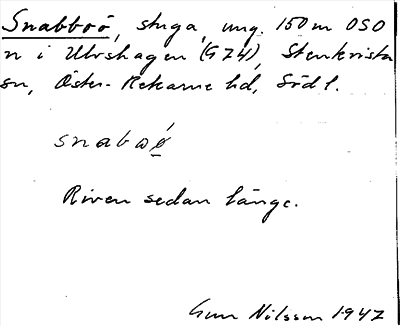 Snabboö, stuga, ung. 150 m OSO
n i Ulvshagen (G 74), Stenkvista
sn, Öster-Rekarne hd, Södl.
snaboǿ
Riven sedan länge.
Gun Nilsson 1947